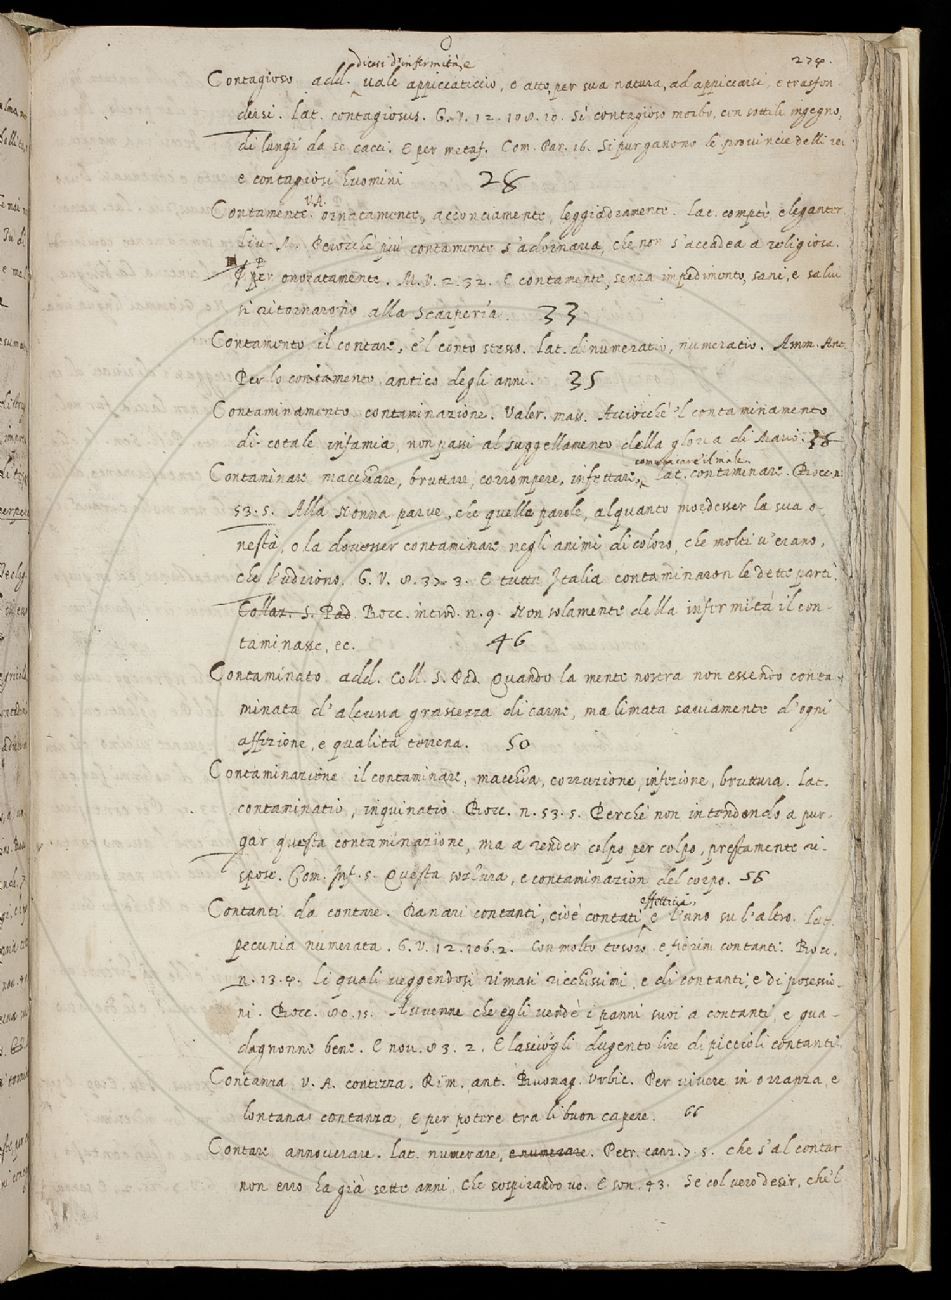 274.
dicesi d'infermità, e
Contagioso add. vale appiccaticcio, e atto per sua natura, ad appiccarsi, e trasfon
dersi. Lat. contagiosus. G.V. 12. 108. 10. Sì contagioso morbo, con sottile ingegno,
di lungi da se cacci. E per metaf. Com. Par. 16. Si purganono le provincie delli rei
e contagiosi huomini 28
Contamente. V.A. ornatamente, acconciamente, leggiadramente. Lat. comptè, eleganter
Liu. M. Perocchè più contamente s'adornava, che non s'accadea a religiosa.
¶ per onoratamente. M.V. 2. 32. E contamente, senza impedimento, sani, e salvi
si ritornarono alla Scarperia. 33
Contamento il contare, e'l conto stesso. Lat. dinumeratio, numeratio. Amm. Ant.
Per lo contamento antico degli anni. 35
Contaminamento contaminazione. Valer. mass. Acciocchè 'l contaminamento
di cotale infamia, non passi al suggellamento della gloria di Mario. 38
comunicare il male
Contaminare macchiare, bruttare, corrompere, infettare, Lat. contaminare. Bocc. n.
53. 5. Alla Nonna parve, che quelle parole, alquanto mordesser la sua o-
nestà, o la dovesser contaminare negli animi di coloro, che molti v'erano,
che l'udirono. G.V. 8. 37. 3. E tutta Italia contaminaron le dette parti.
Collaz. S. Pad. Bocc. introd. n. 9. Non solamente della infermità il con-
taminasse, ec. 46
Contaminato add. Coll. S. Pad. Quando la mente nostra non essendo conta-
minata d'alcuna grassezza di carne, ma limata saviamente d'ogni
affezione, e qualità terrena. 50
Contaminazione il contaminare, macchia, corruzione, infezione, bruttura. Lat.
contaminatio, inquinatio. Bocc. n. 53. 5. Perchè non intendendo a pur-
gar questa contaminazione, ma a render colpo per colpo, prestamente ri-
spose. Com. Inf. 5. Questa sozzura, e contaminazion del corpo. 58
effettivi
Contanti da contare. Danari contanti, cioè contati, e l'uno su l'altro. Lat.
pecunia numerata. G.V. 12. 106. 2. Con molto tesoro e fiorini contanti. Bocc.
n. 13. 4. Li quali veggendosi rimasi ricchissimi, e di contanti, e di posessio-
ni. Bocc. 80. 15. Avvenne che egli vendè i panni suoi a contanti, e gua-
dagnonne bene. E nov. 83. 2. E lasciògli dugento lire di piccioli contanti.
Contanza V. A. contezza. Rim. ant. Buonag. Urbic. Per vivere in orranza, e
lontanar contanza, E per potere tra li buon capere. 66
Contare annoverare. Lat. numerare, e numerare. Petr. canz. 7. 5. che s'al contar
non erro ha già sette anni, Che sospirando vo. E son. 43. Se col vero desir, che'l